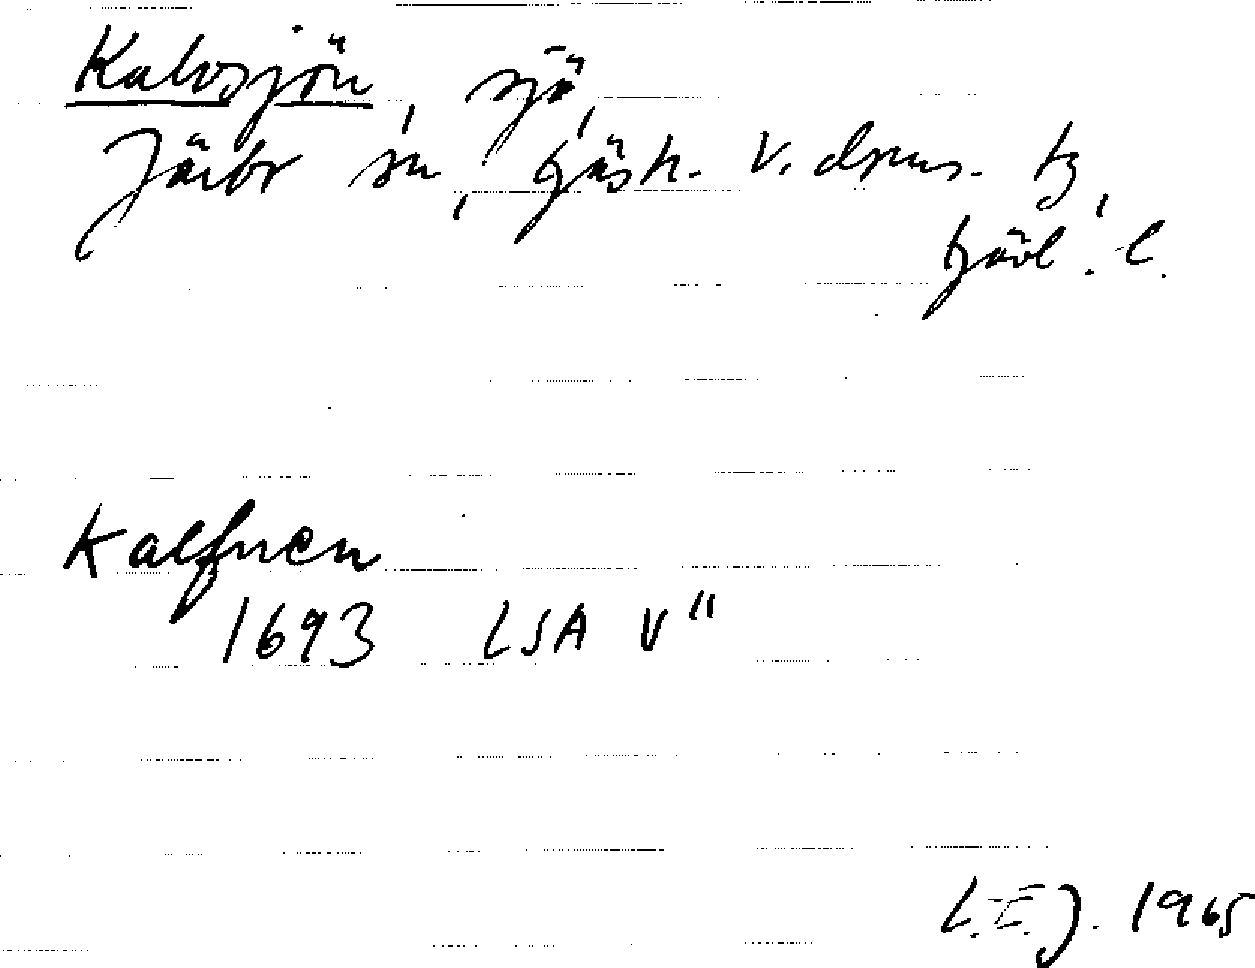 Kalvsjön, sjö,
Järbo sn, Gästr. V. doms. tg,
Gävl. l.
Kalfnen
1693 LSA V"
L.E.J. 1965